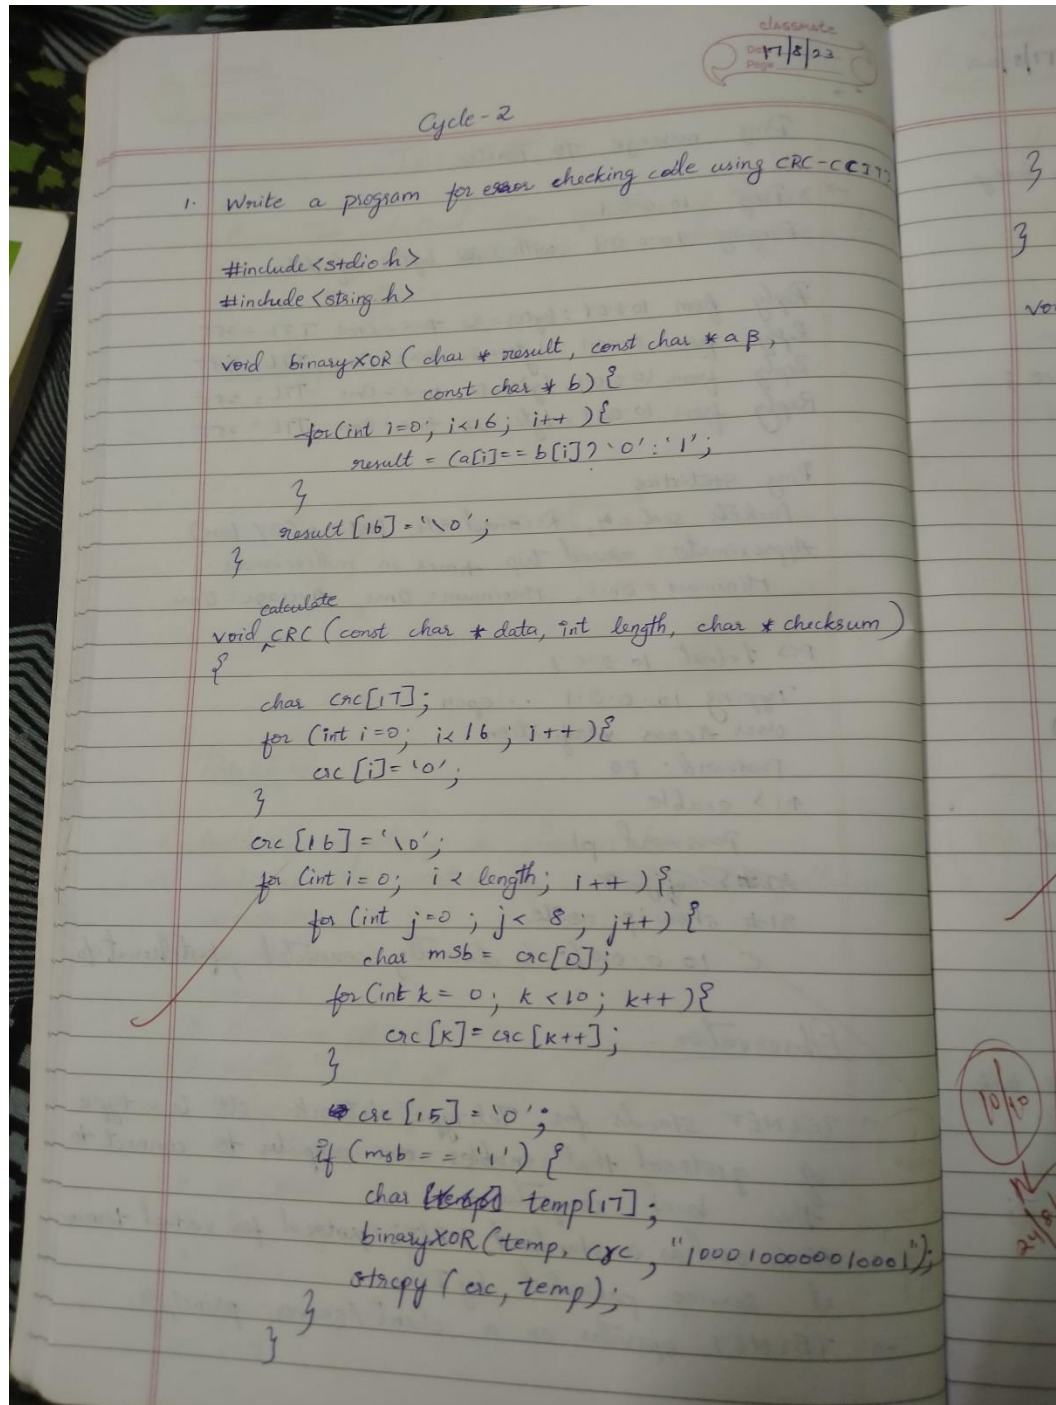 classmate
Date 17/8/23
Page
Cycle - 2
1. Write a program for error checking code using CRC-CCITT
#include <stdio h>
#include <string h>
void binaryXOR ( char * result, const char * a B,
const char * b) {
for (int i=0; i<16; i++ ){
result = (a[i]== b[i]? '0' : '1';
}
result [16] = '\0';
}
calculate
void CRC (const char * data, int length, char * checksum)
{
char crc[17];
for (int i=0; i< 16; i++ ){
crc [i]= '0';
}
crc [16] = '\0';
for (int i=0; i < length; i++ ) {
for (int j=0 ; j< 8 ; j++ ) {
char msb = crc[0];
for (int k = 0; k <10; k++ ){
crc [k]= crc [k++];
}
crc [15] = '0';
if (msb = = '1') {
char temp[17];
binaryXOR (temp, crc, "10001000000010001");
strcpy ( crc, temp);
}
}
}
}
voi
10/10